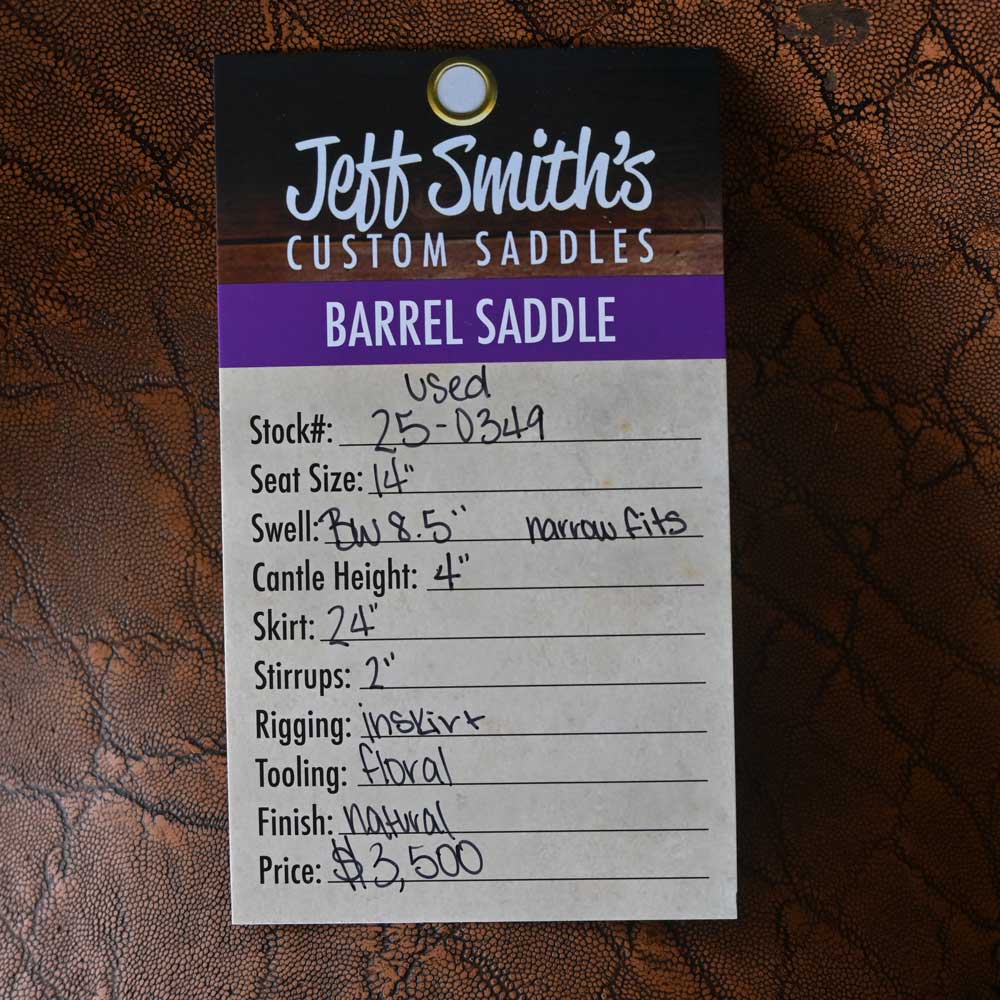 Jeff Smith's
CUSTOM SADDLES
BARREL SADDLE
used
Stock#: 25-0349
Seat Size: 14"
Swell: BW 8.5" narrow fits
Cantle Height: 4"
Skirt: 24"
Stirrups: 2"
Rigging: inskirt
Tooling: floral
Finish: natural
Price: $3,500